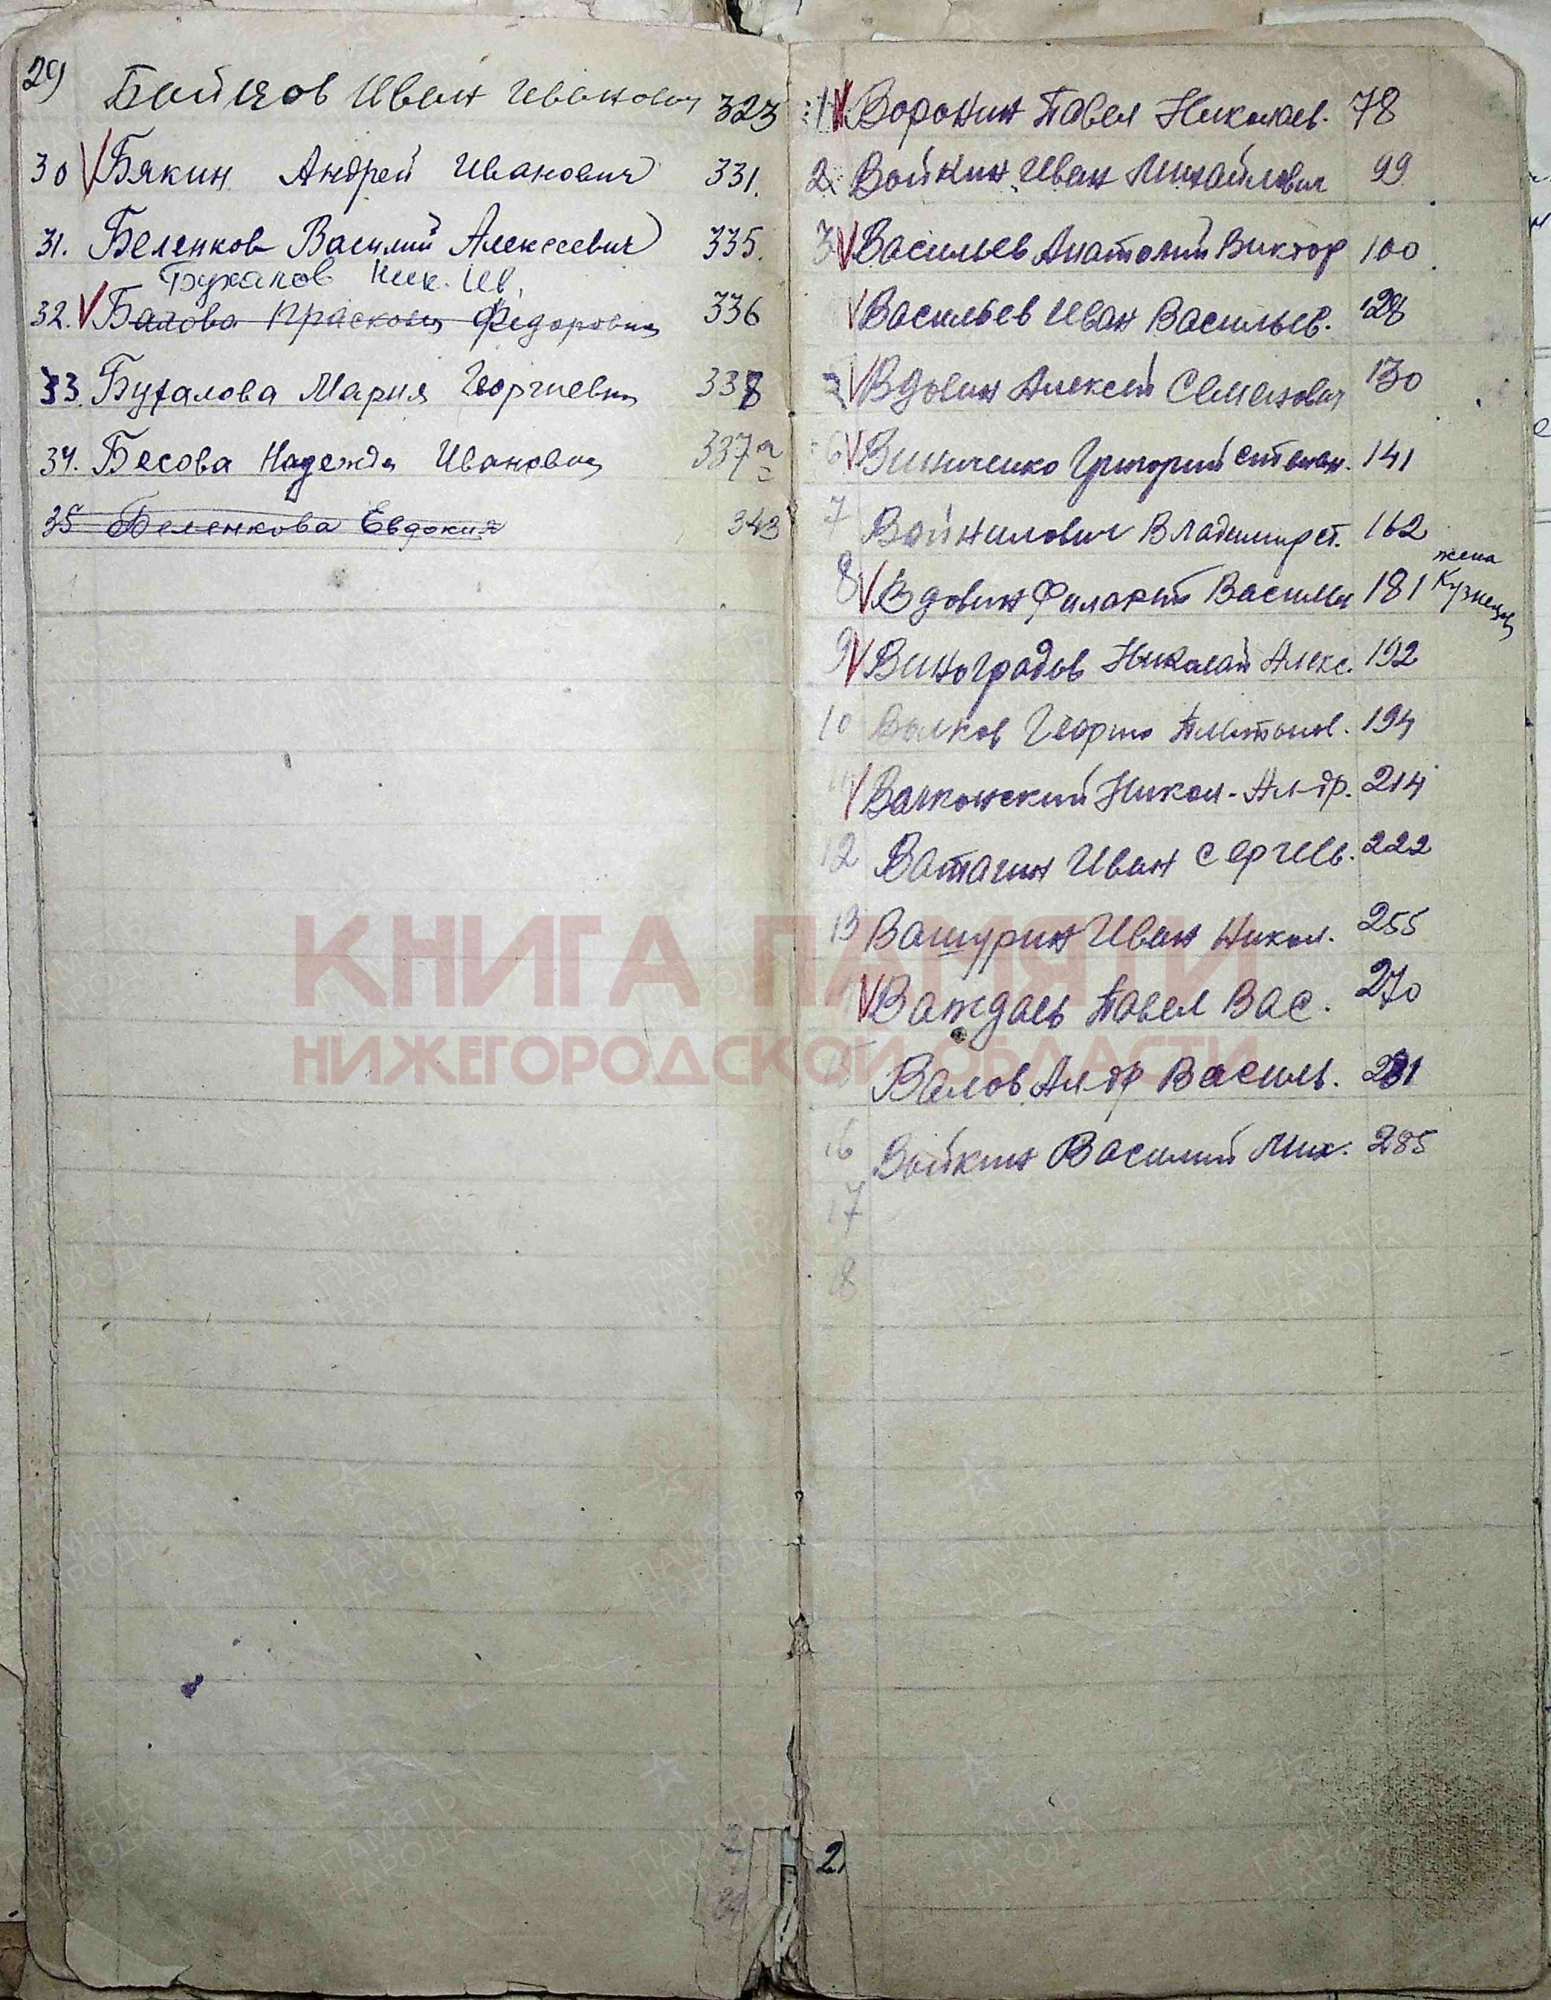 29 Байков Иван Иванович 323
30 V Бякин Андрей Иванович 331.
31. Беленков Василий Алексеевич 335.
Бухалов Ник. Ив.
32. V Балова Прасковья Федоровна 336
33. Бухалова Мария Георгиевна 338
34. Бесова Надежда Ивановна 337
35 Беленкова Евдокия 343
1 V Воронин Павел Николаев. 78
2. Войкин Иван Михайлович 99
3 V Васильев Анатолий Виктор 100
V Васильев Иван Васильев. 128
V Вдовин Алексей Семенович 130
6 V Винниченко Григорий Степан. 141
7 Войнилович Владимир ст. 162
жена
8 V Вдовин Филарет Василь 181 Кузнецов
9 V Виноградов Николай Алекс. 192
10 Волков Георгий Платонов. 194
V Волконский Никол. Ал-др. 214
12 Ватагин Иван Сергеев. 222
13 Вашурин Иван Никол. 255
V Важдаев Павел Вас. 270
15 Валов Ал-др Василь. 281
16 Войкин Василий Мих. 285
17
18
2.
КНИГА ПАМЯТИ
НИЖЕГОРОДСКОЙ ОБЛАСТИ
ПАМЯТЬ НАРОДА